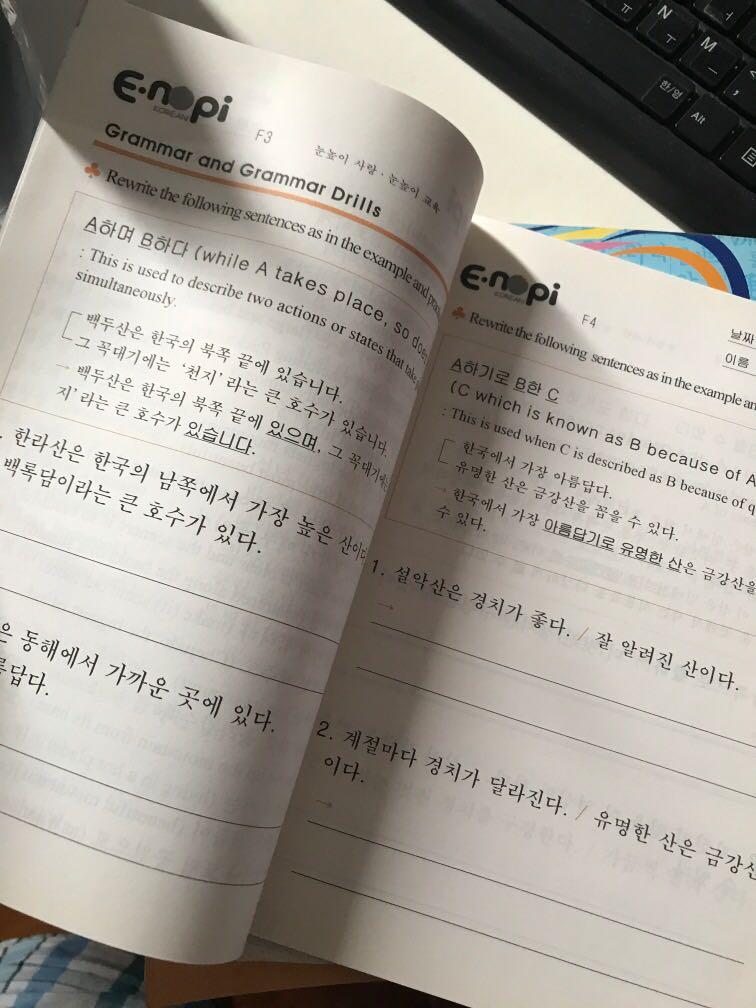 E·nopi
KOREAN
F3
눈높이 사랑 · 눈높이 교육
Grammar and Grammar Drills
Rewrite the following sentences as in the example and
A하며 B하다 (while A takes place, so
: This is used to describe two actions or states that
simultaneously.
백두산은 한국의 북쪽 끝에 있습니다.
그 꼭대기에는 '천지'라는 큰 호수가 있습니다.
→ 백두산은 한국의 북쪽 끝에 있으며, 그
지'라는 큰 호수가 있습니다.
한라산은 한국의 남쪽에서 가장 높은
백록담이라는 큰 호수가 있다.
동해에서 가까운 곳에 있다.
E·nopi
KOREAN
F4
날짜
이름
Rewrite the following sentences as in the example
A하기로 B한 C
(C which is known as B because of A
: This is used when C is described as B because of
한국에서 가장 아름답다.
유명한 산은 금강산을 꼽을 수 있다.
→ 한국에서 가장 아름답기로 유명한 산은 금강산을
수 있다.
1. 설악산은 경치가 좋다. / 잘 알려진 산이다.
→
2. 계절마다 경치가 달라진다. / 유명한 산은
이다.
→
N
M
ㅜ
ㅡ
한/영
Alt